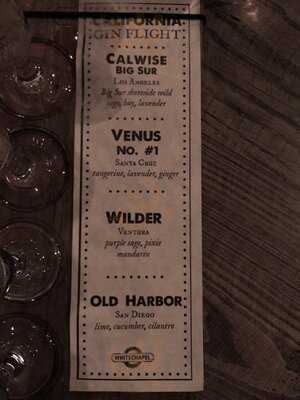 CALIFORNIA
GIN FLIGHT
CALWISE
BIG SUR
LOS ANGELES
Big Sur shoreside wild
sage, bay, lavender
VENUS
NO. #1
SANTA CRUZ
tangerine, lavender, ginger
WILDER
VENTURA
purple sage, pixie
mandarin
OLD HARBOR
SAN DIEGO
lime, cucumber, cilantro
WHITECHAPEL